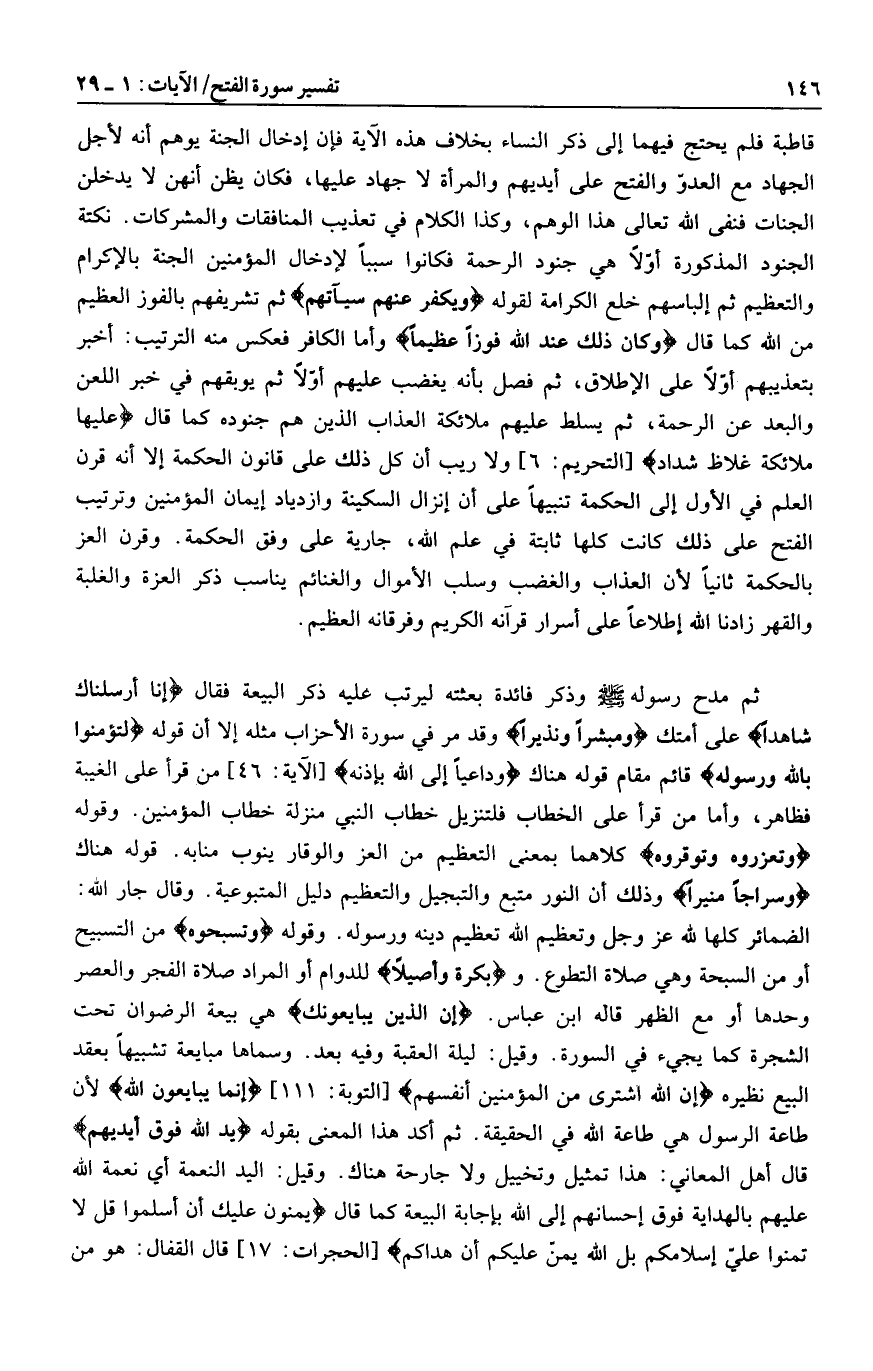 ١٤٦ تفسير سورة الفتح/ الآيات: ١ ـ ٢٩
قاطبة فلم يحتج فيهما إلى ذكر النساء بخلاف هذه الآية فإن إدخال الجنة يوهم أنه لأجل
الجهاد مع العدوّ والفتح على أيديهم والمرأة لا جهاد عليها، فكان يظن أنهن لا يدخلن
الجنات فنفى الله تعالى هذا الوهم، وكذا الكلام في تعذيب المنافقات والمشركات. نكتة
الجنود المذكورة أوّلاً هي جنود الرحمة فكانوا سبباً لإدخال المؤمنين الجنة بالإكرام
والتعظيم ثم إلباسهم خلع الكرامة لقوله ﴿ويكفر عنهم سيـآتهم﴾ ثم تشريفهم بالفوز العظيم
من الله كما قال ﴿وكان ذلك عند الله فوزاً عظيماً﴾ وأما الكافر فعكس منه الترتيب: أخبر
بتعذيبهم أوّلاً على الإطلاق، ثم فصل بأنه يغضب عليهم أوّلاً ثم يوبقهم في خبر اللعن
والبعد عن الرحمة، ثم يسلط عليهم ملائكة العذاب الذين هم جنوده كما قال ﴿عليها
ملائكة غلاظ شداد﴾ [التحريم: ٦] ولا ريب أن كل ذلك على قانون الحكمة إلا أنه قرن
العلم في الأول إلى الحكمة تنبيهاً على أن إنزال السكينة وازدياد إيمان المؤمنين وترتيب
الفتح على ذلك كانت كلها ثابتة في علم الله، جارية على وفق الحكمة. وقرن العز
بالحكمة ثانياً لأن العذاب والغضب وسلب الأموال والغنائم يناسب ذكر العزة والغلبة
والقهر زادنا الله إطلاعاً على أسرار قرآنه الكريم وفرقانه العظيم.
ثم مدح رسوله ﷺ وذكر فائدة بعثته ليرتب عليه ذكر البيعة فقال ﴿إنا أرسلناك
شاهداً﴾ على أمتك ﴿ومبشراً ونذيراً﴾ وقد مر في سورة الأحزاب مثله إلا أن قوله ﴿لتؤمنوا
بالله ورسوله﴾ قائم مقام قوله هناك ﴿وداعياً إلى الله بإذنه﴾ [الآية: ٤٦] من قرأ على الغيبة
فظاهر، وأما من قرأ على الخطاب فلتنزيل خطاب النبي منزلة خطاب المؤمنين. وقوله
﴿وتعزروه وتوقروه﴾ كلاهما بمعنى التعظيم من العز والوقار ينوب منابه. قوله هناك
﴿وسراجاً منيراً﴾ وذلك أن النور متبع والتبجيل والتعظيم دليل المتبوعية. وقال جار الله:
الضمائر كلها لله عز وجل وتعظيم الله تعظيم دينه ورسوله. وقوله ﴿وتسبحوه﴾ من التسبيح
أو من السبحة وهي صلاة التطوع. و ﴿بكرة وأصيلاً﴾ للدوام أو المراد صلاة الفجر والعصر
وحدها أو مع الظهر قاله ابن عباس. ﴿إن الذين يبايعونك﴾ هي بيعة الرضوان تحت
الشجرة كما يجيء في السورة. وقيل: ليلة العقبة وفيه بعد. وسماها مبايعة تشبيهاً بعقد
البيع نظيره ﴿إن الله اشترى من المؤمنين أنفسهم﴾ [التوبة: ١١١] ﴿إنما يبايعون الله﴾ لأن
طاعة الرسول هي طاعة الله في الحقيقة. ثم أكد هذا المعنى بقوله ﴿يد الله فوق أيديهم﴾
قال أهل المعاني: هذا تمثيل وتخييل ولا جارحة هناك. وقيل: اليد النعمة أي نعمة الله
عليهم بالهداية فوق إحسانهم إلى الله بإجابة البيعة كما قال ﴿يمنون عليك أن أسلموا قل لا
تمنوا عليّ إسلامكم بل الله يمنّ عليكم أن هداكم﴾ [الحجرات: ١٧] قال القفال: هو من